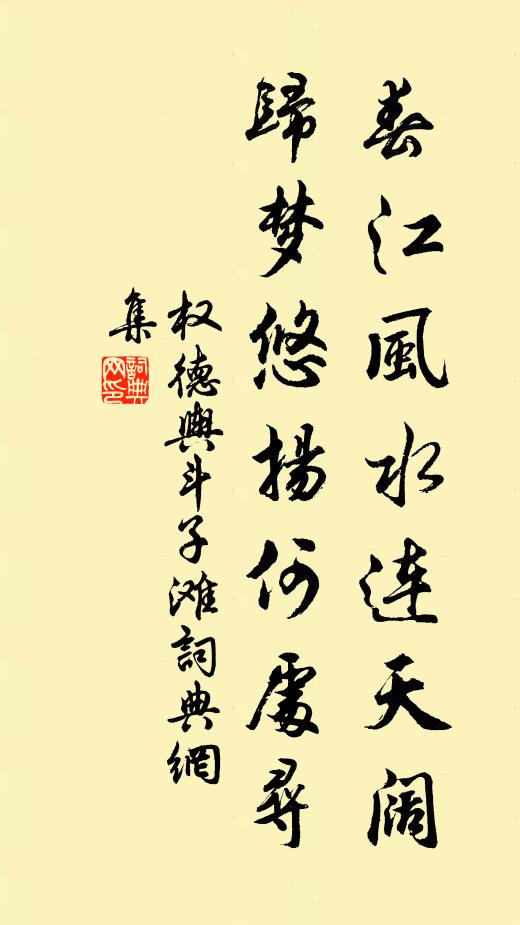 春江風水連天阔
歸梦悠揚何處尋
权德與斗子滩詞典網
集
詞典网印